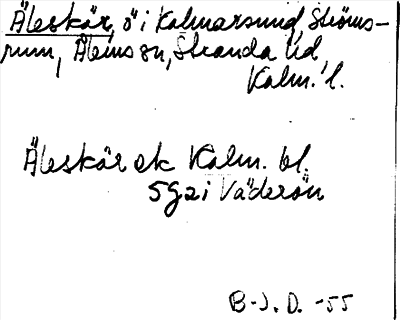 Äleskär, ö i Kalmarsund, Ströms-
rum, Ålems sn, Stranda hd,
Kalm. l.
Äleskär ek Kalm. bl.
5G2i Väderön
B-J. D. -55